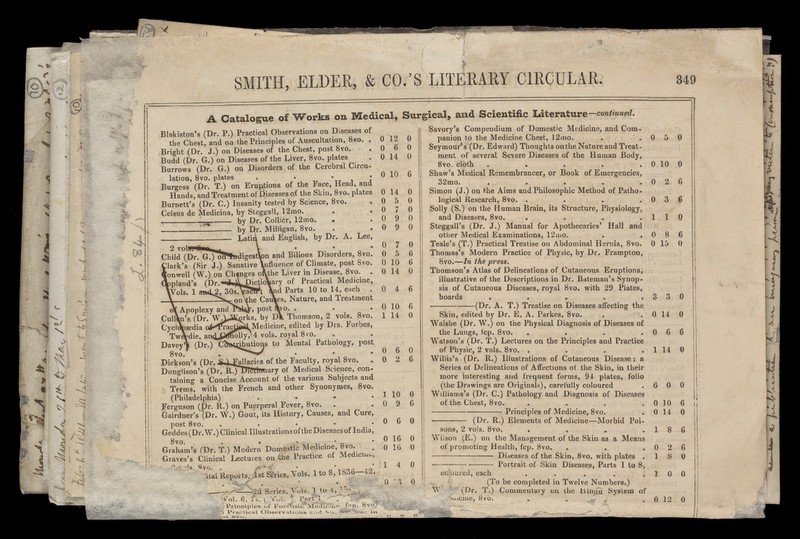 SMITH, ELDER, & CO.'S LITERARY CIRCULAR. 349
A Catalogue of Works on Medical, Surgical, and Scientific Literature—continued.
Blakiston's (Dr. P.) Practical Observations on Diseases of
the Chest, and on the Principles of Auscultation, 8vo. . 0 12 0
Bright (Dr. J.) on Diseases of the Chest, post 8vo. . 0 6 0
Budd (Dr. G.) on Diseases of the Liver, 8vo. plates . 0 14 0
Burrows (Dr. G.) on Disorders of the Cerebral Circu-
lation, 8vo. plates . . . . 0 10 6
Burgess (Dr. T.) on Eruptions of the Face, Head, and
Hands, and Treatment of Diseases of the Skin, 8vo. plates 0 14 0
Burnett's (Dr. C.) Insanity tested by Science, 8vo. . 0 5 0
Celsus de Medicina, by Steggall, 12mo. . . 0 7 0
by Dr. Collier, 12mo. . . 0 9 0
by Dr. Milligan, 8vo. . . 0 9 0
Latin and English, by Dr. A. Lee,
2 vols. 8vo. . . . 0 7 0
Child (Dr. G.) on Indigestion and Bilious Disorders, 8vo. 0 5 6
Clark's (Sir J.) Sanative Influence of Climate, post 8vo. 0 10 6
Conwell (W.) on Changes of the Liver in Disease, 8vo. . 0 14 0
Copland's (Dr. J.) Dictionary of Practical Medicine,
Vols. 1 and 2, 30s. each; and Parts 10 to 14, each . 0 4 6
on the Causes, Nature, and Treatment
of Apoplexy and Palsy, post 8vo. . . 0 10 6
Cullen's (Dr. W.) Works, by Dr. Thomson, 2 vols. 8vo. 1 14 0
Cyclopædia of Practical Medicine, edited by Drs. Forbes,
Tweedie, and Conolly, 4 vols. royal 8vo.
Davey's (Dr.) Contributions to Mental Pathology, post
8vo. . . . . 0 6 0
Dickson's (Dr. S.) Fallacies of the Faculty, royal 8vo. . 0 2 6
Dunglison's (Dr. R.) Dictionary of Medical Science, con-
taining a Concise Account of the various Subjects and
Terms, with the French and other Synonymes, 8vo.
(Philadelphia) . . . . 1 10 0
Ferguson (Dr. R.) on Puerperal Fever, 8vo. . . 0 9 6
Gairdner's (Dr. W.) Gout, its History, Causes, and Cure,
post 8vo. . . . . 0 6 0
Geddes (Dr. W.) Clinical Illustrations of the Diseases of India,
8vo. . . . . 0 16 0
Graham's (Dr. T.) Modern Domestic Medicine, 8vo. . 0 16 0
Graves's Clinical Lectures on the Practice of Medicine,
8vo. . . . 1 4 0
ital Reports, 1st Series, Vols. 1 to 8, 1836—42,
2d Series, Vols. 1 to 4,
Vol. 6, Part 1
Principles of Forensic Medicine, fcp. 8vo.
Practical Observations
Savory's Compendium of Domestic Medicine, and Com-
panion to the Medicine Chest, 12mo. . . 0 5 0
Seymour's (Dr. Edward) Thoughts on the Nature and Treat-
ment of several Severe Diseases of the Human Body,
8vo. cloth . . . . 0 10 0
Shaw's Medical Remembrancer, or Book of Emergencies,
32mo. . . . . 0 2 6
Simon (J.) on the Aims and Philosophic Method of Patho-
logical Research, 8vo. . . . 0 3 6
Solly (S.) on the Human Brain, its Structure, Physiology,
and Diseases, 8vo. . . . . 1 1 0
Steggall's (Dr. J.) Manual for Apothecaries' Hall and
other Medical Examinations, 12mo. . . 0 8 6
Teale's (T.) Practical Treatise on Abdominal Hernia, 8vo. 0 15 0
Thomas's Modern Practice of Physic, by Dr. Frampton,
8vo.—In the press.
Thomson's Atlas of Delineations of Cutaneous Eruptions,
illustrative of the Descriptions in Dr. Bateman's Synop-
sis of Cutaneous Diseases, royal 8vo. with 29 Plates,
boards . . . . 3 3 0
(Dr. A. T.) Treatise on Diseases affecting the
Skin, edited by Dr. E. A. Parkes, 8vo. . . 0 14 0
Walshe (Dr. W.) on the Physical Diagnosis of Diseases of
the Lungs, fcp. 8vo. . . . . 0 6 6
Watson's (Dr. T.) Lectures on the Principles and Practice
of Physic, 2 vols. 8vo. . . . . 1 14 0
Willis's (Dr. R.) Illustrations of Cutaneous Disease: a
Series of Delineations of Affections of the Skin, in their
more interesting and frequent forms, 94 plates, folio
(the Drawings are Originals), carefully coloured . 6 0 0
Williams's (Dr. C.) Pathology and Diagnosis of Diseases
of the Chest, 8vo. . . . . 0 10 6
Principles of Medicine, 8vo. . 0 14 0
(Dr. R.) Elements of Medicine—Morbid Poi-
sons, 2 vols. 8vo. . . . . 1 8 6
Wilson (E.) on the Management of the Skin as a Means
of promoting Health, fcp. 8vo. . . . 0 2 6
Diseases of the Skin, 8vo. with plates . 1 8 0
Portrait of Skin Diseases, Parts 1 to 8,
coloured, each . . . . 1 0 0
(To be completed in Twelve Numbers.)
(Dr. T.) Commentary on the Hindu System of
Medicine, 8vo. . . . . 0 12 0